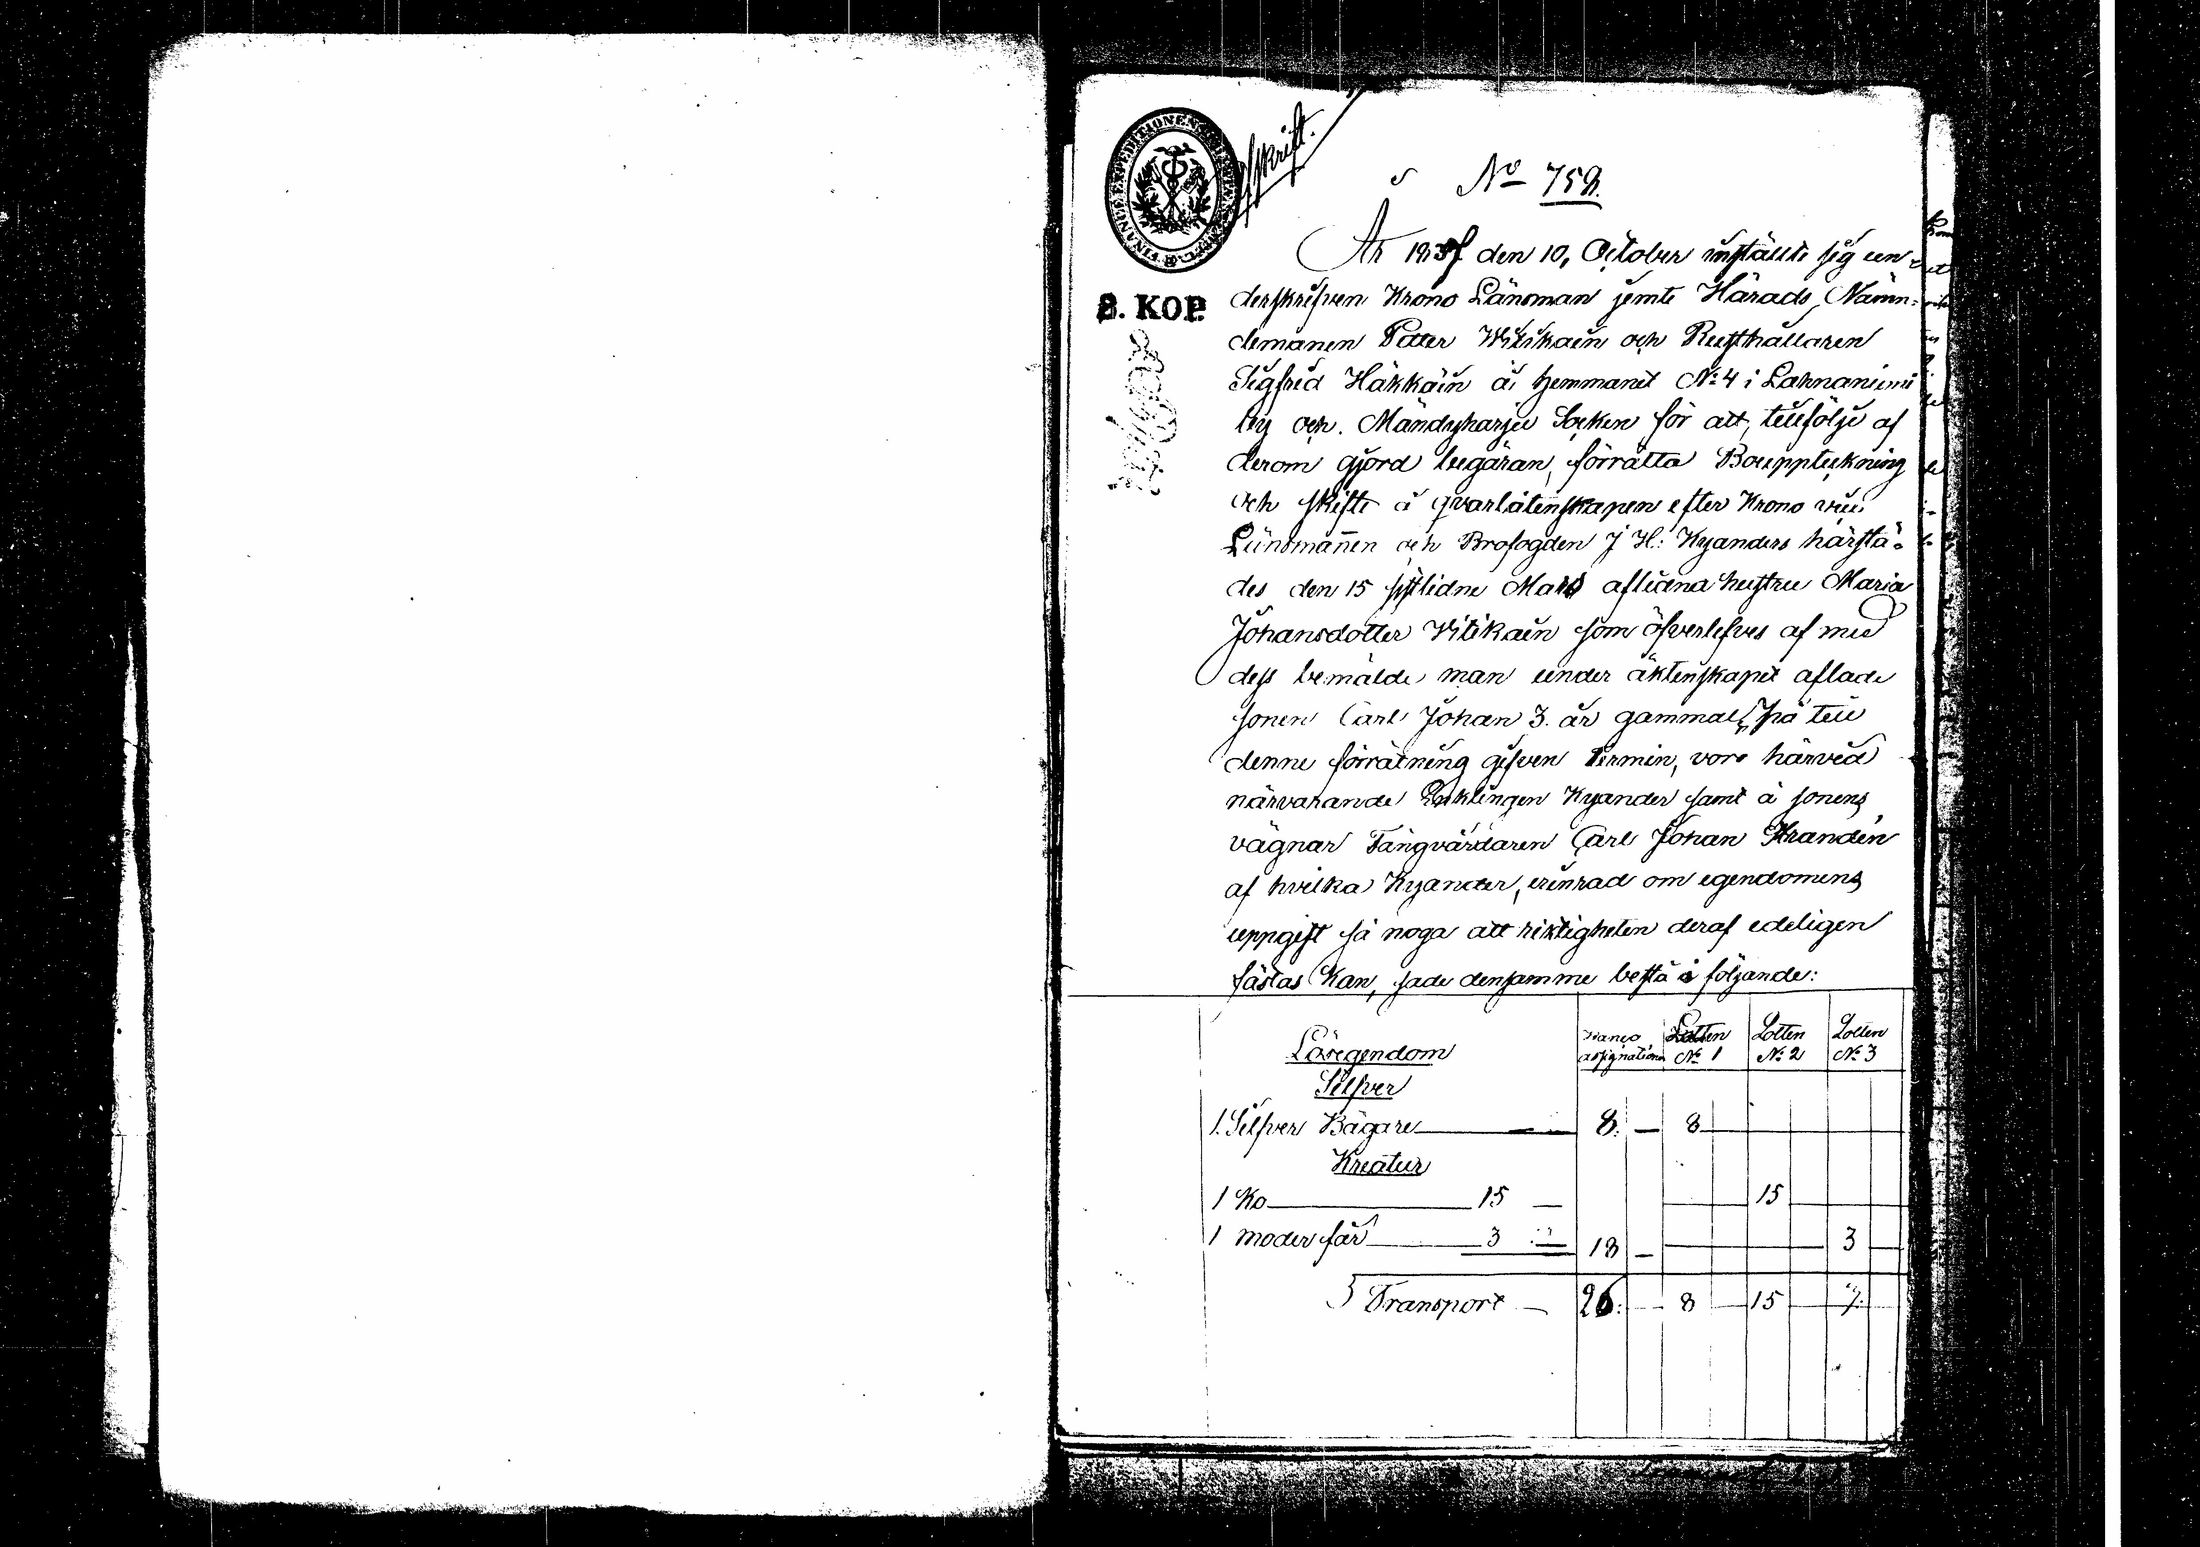 Afskrift.
No 758.
År 1837 den 10, October instälte sig un-
derskrifven Krono Länsman jemte Härads Nämn-
demannen Petter Witikain och Rusthållaren
Sigfrid Häkkäin å hemmanet No 4 i Lahnaniemi
by och Mändyharju Socken för att, till följe af
derom gjord begäran, förrätta Bouppteckning
och skifte å qvarlåtenskapen efter Krono vice
Länsmannen och Brofogden J H: Kyanders härstä-
des den 15 sistlidne Mars aflidna hustru Maria
Johansdotter Vitikain som öfverlefves af med
dess bemälde man under äktenskapet aflade
sonen Carl Johan 3 år gammal, På till
denne förrätning gifven termin, voro härvid
närvarande Enklingen Kyander samt å sonens
vägnar Fångvårdaren Carl Johan Strandén
af hvilka Kyander, erinrad om egendomens
uppgift så noga att riktigheten deraf edeligen
fästas kan, sade densamme bestå i följande:
Lösegendom
Banco assignationer
Lotten No 1
Lotten No 2
Lotten No 3
Silfver
1. Silfver Bägare 8. — 8
Kreatur
1 Ko 15 — 15
1 moder får 3 — 18 — 3
Transport — 26: — 8 15
FINANCE EXPEDITIONENS
8. KOP.